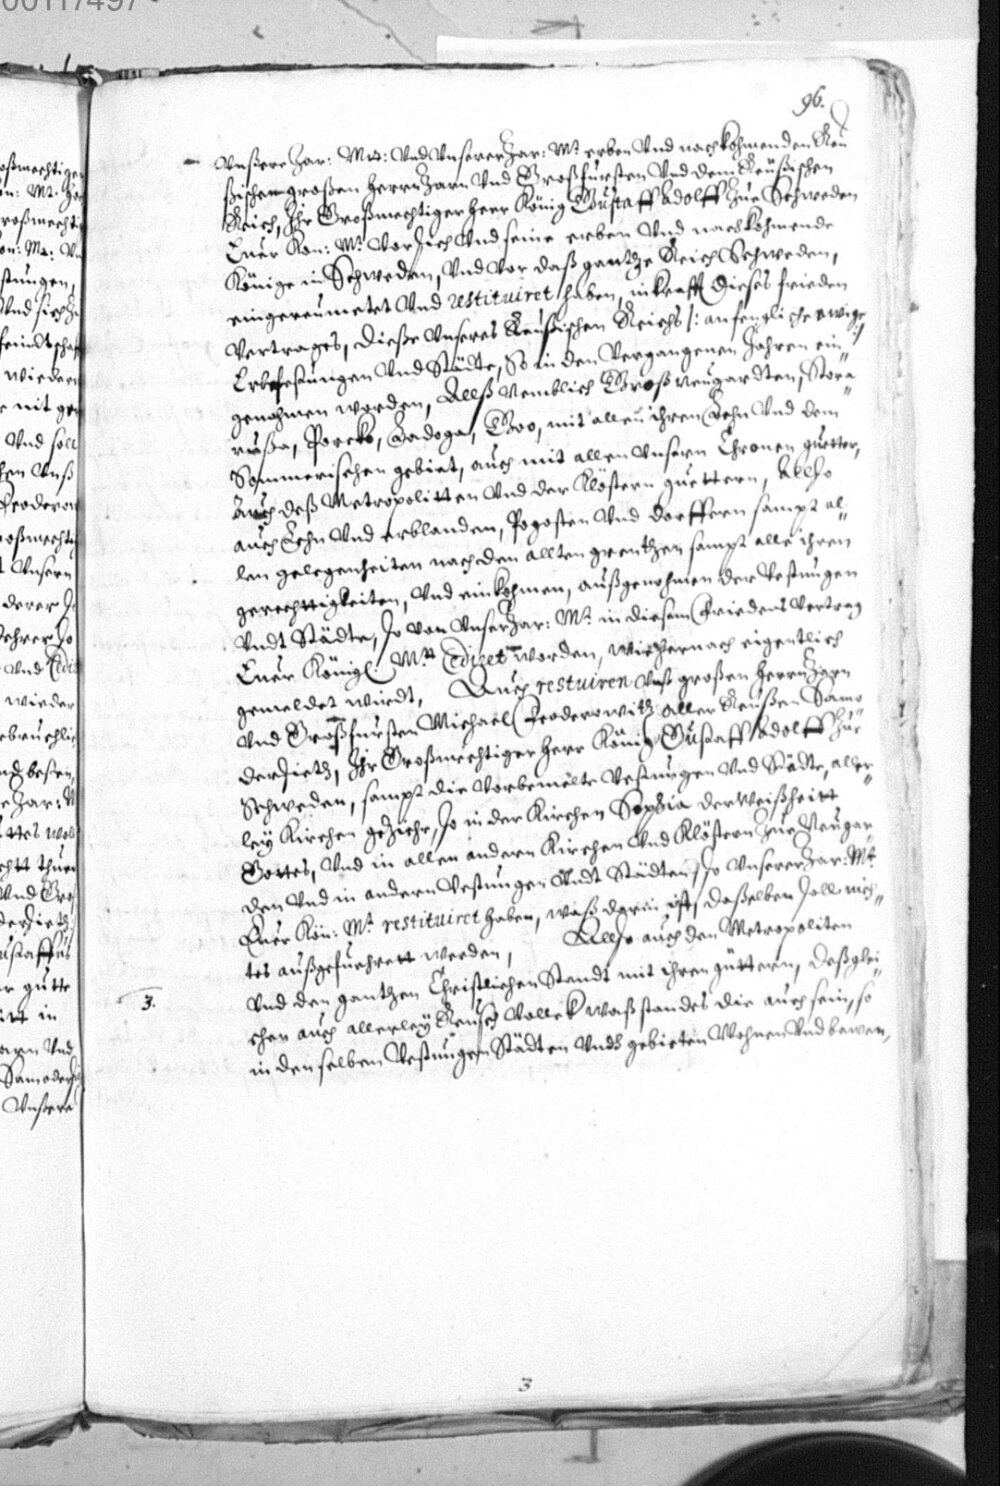 00117497
96.
Unßere Zar: Mtt: Vnd Vnserer Zar: Mt. erben Vnd nachkohmenden Reu
ßischen großen Herrn Zarn Vnd Großfürsten Vnd dem Reußischen
Reich, Ihr Großmechtiger Herr König Gustaff Adolff Zue Schweden
Euer Kön: Mt. Vor sich Vnd seine erben Vnd nachkohmende
Könige in Schweden, Vnd Vor daß gantze Reich Schweden,
eingereumetet Vnd restituiret haben, in krafft dieses frieden
Vertrages, diese Vnseres Reußischen Reichs /: anfengliche ewige :/
Erbfestungen Vnd Städte, So in den Vergangenen Jahren ein„
genohmen worden, Allß Nemblich Groß Neugardten, Stara„
rußa, Porcko, Ladoga, Gdo, mit allen ihren Lehn Vnd dem
Sommerischen gebiet, auch mit allen Vnsern Chronen guetter,
Auch deß Metropolitten Vnd der Klöstern guettern, Allso
auch Lehn Vnd erblanden, Pogosten Vnd dorffern sampt al„
len gelegenheiten nach den allten grentzen sampt alle ihren
gerechttigkeiten, Vnd einkohmen, außgenohmen der Vestungen
Vndt Städte, So von Vnser Zar: Mt. in diesem Friedens Vertrag
Euer Königl: Mtt. Cediret worden, wie hernach eigentlich
gemeldet wirdt, Auch restuiren Vnß großen Herrn Zarn
Vnd Großfursten Michael Feoderowitz aller Reußen Samo
derzietz, Ihr Großmechtiger Herr König Gustaff Adolff Zue
Schweden, sampt die Vorbemelte Vestungen Vnd Städte, aller„
ley Kirchen geziehr, So in der Kirchen Sophia der Weißheitt
Gottes, Vnd in allen andern Kirchen Vnd Klöstern Zue Neugar„
den Vnd in andern Vestungen Vndt Städten, So Vnserer Zar: Mt.
Euer Kön: Mt. restituiret haben, waß darin ist, daßelben soll nich„
tes außgefuehrett werden, Allso auch den Metropoliten
Vnd den gantzen Christlichen Standt mit ihren güttern, deßglei„
3.
chen auch allerley Reusch Vollck waß standes die auch sein, so
in denselben Vestungen Städten Vndt gebieten Wohnen Vnd bawen,
3